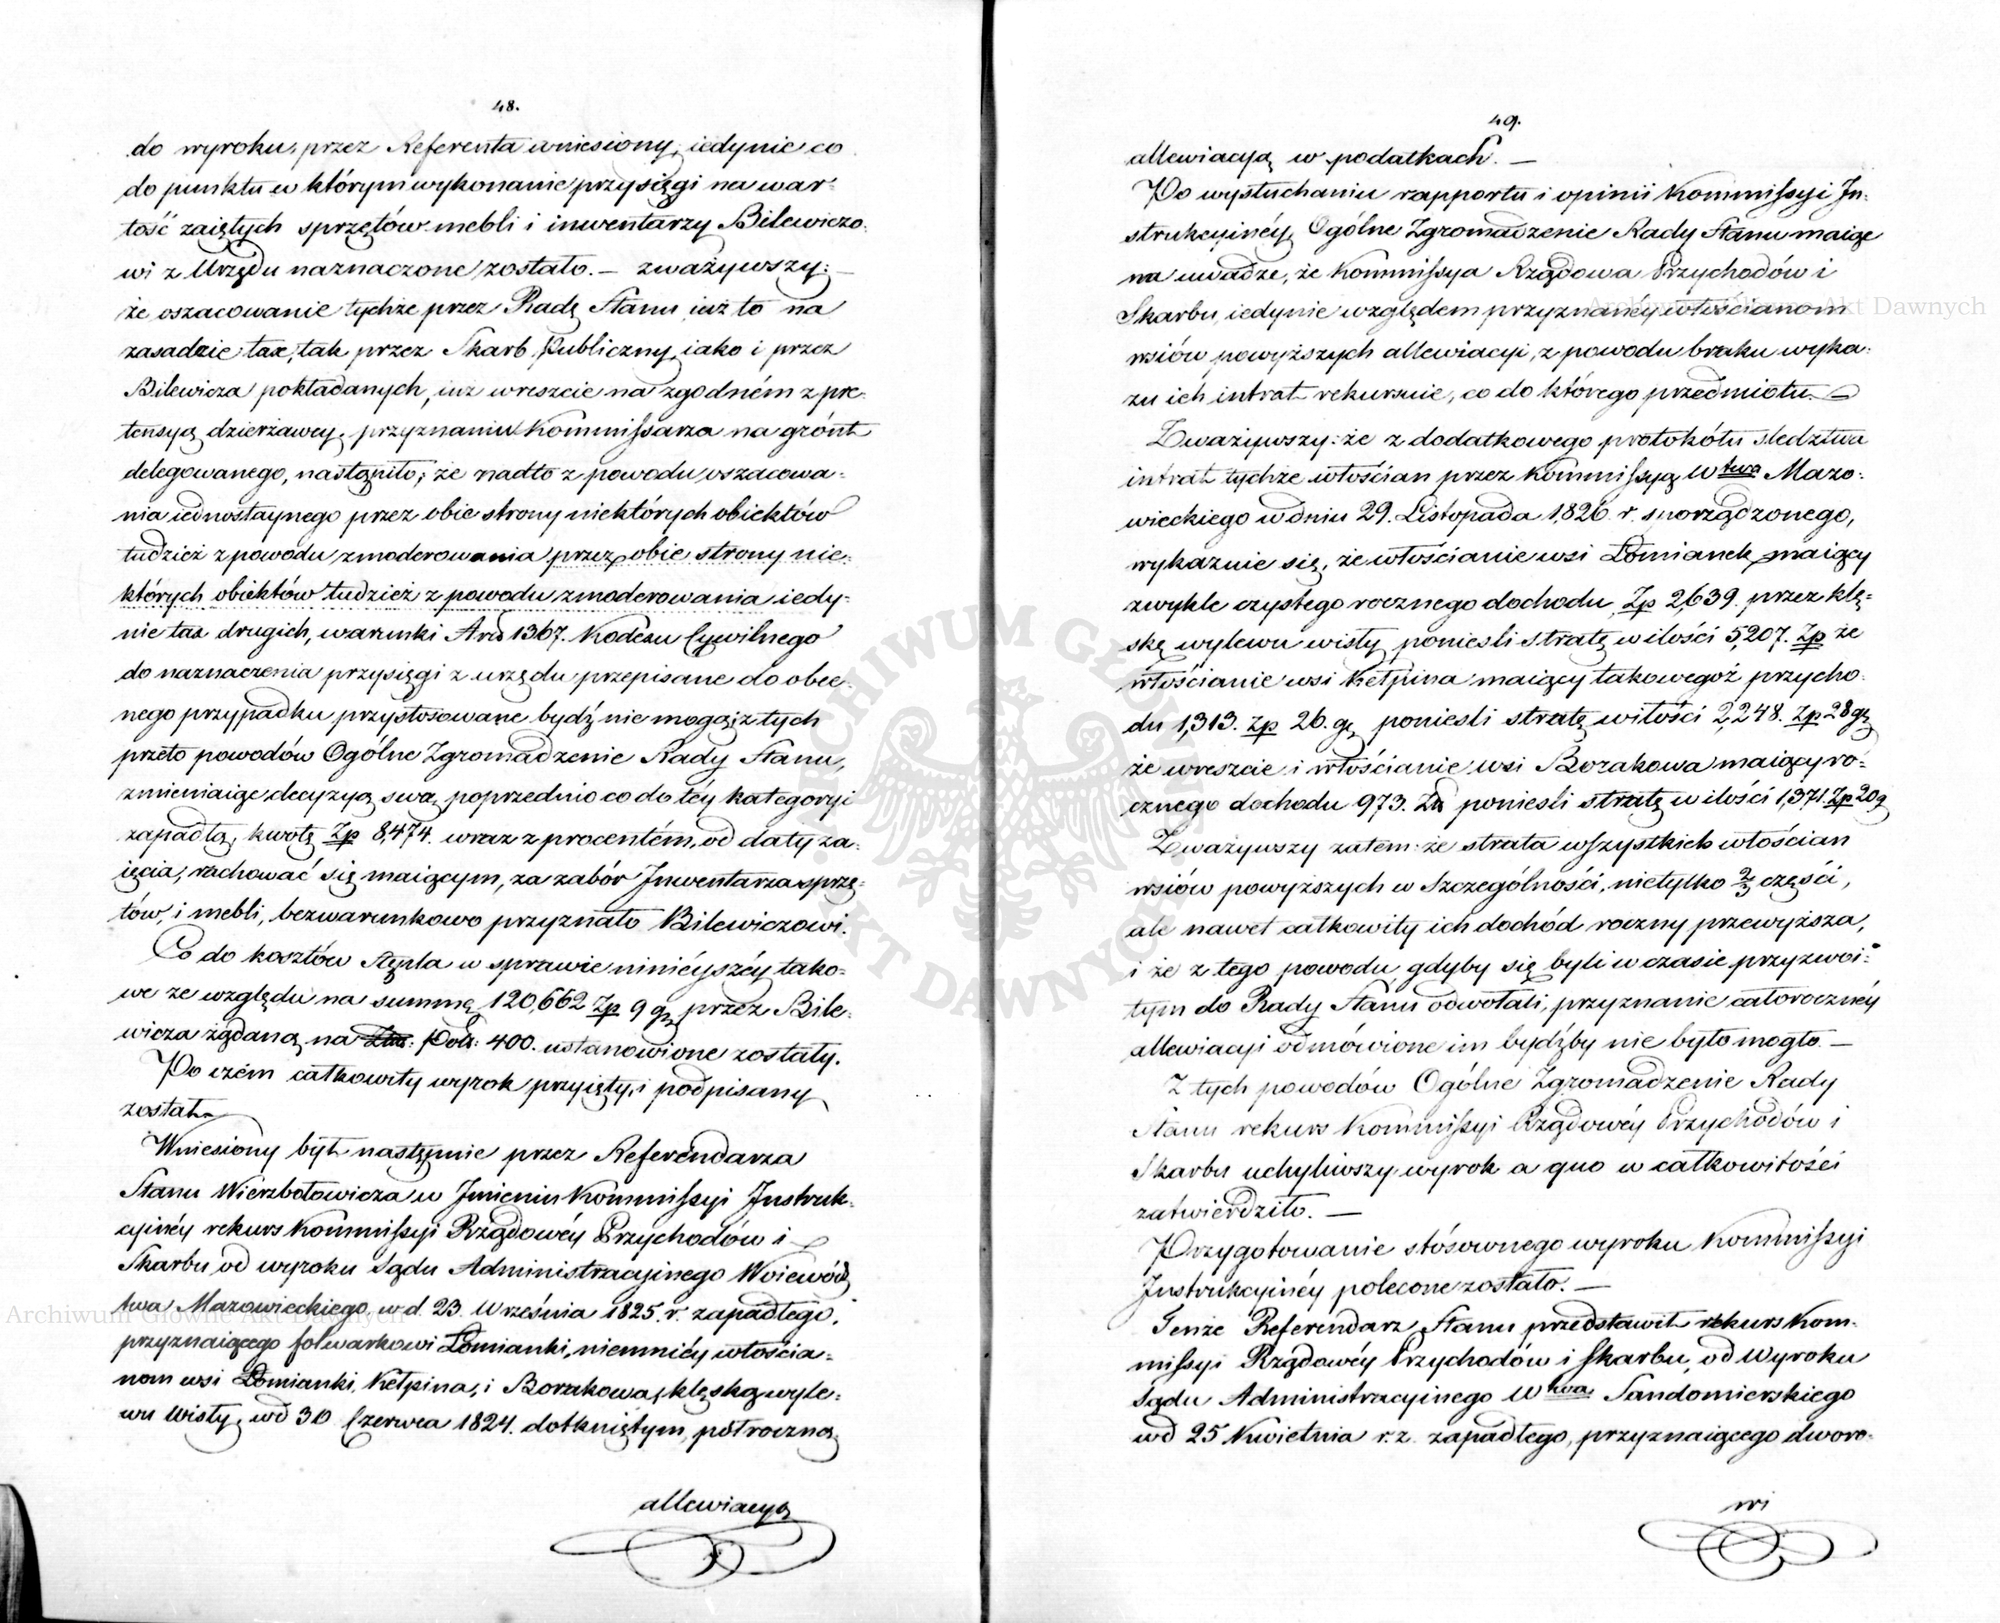 48.
do wyroku, przez Referenta wniesiony, iedynie co
do punktu w którym wykonanie przysięgi na war-
tość zaiętych sprzętów mebli i inwentarzy Bilewiczo-
wi z Urzędu naznaczone zostało. — zważywszy: —
że oszacowanie tychże przez Radę Stanu iuż to na
zasadzie tax, tak przez Skarb Publiczny, iako i przez
Bilewicza pokładanych, iuż wreszcie na zgodném z pre-
tensyą dzierżawcy, przyznaniu Kommissarza na grónt
delegowanego, nastąpiło; że nadto z powodu oszacowa-
nia iednostaynego przez obie strony niektórych obiektów
tudzież z powodu zmoderowania przez obie strony nie-
których obiektów tudzież z powodu zmoderowania iedy-
nie tax drugich, warunki Art 1367. Kodexu Cywilnego
do naznaczenia przysięgi z urzędu przepisane do obec-
nego przypadku przystosowane bydź nie mogą; z tych
przeto powodów Ogólne Zgromadzenie Rady Stanu,
zmieniaiąc decyzyą swą, poprzednio co do téy kategoryi
zapadłą, kwotę Zp 8,474. wraz z procentém, od daty za-
ięcia, rachować się maiącym, za zabór Inwentarza sprzę-
tów, i mebli, bezwarunkowo przyznało Bilewiczowi.
Co do kosztów stępla w sprawie ninieyszéy, tako-
we ze względu na summę 120,662 Zp 9 gr, przez Bile-
wicza żądaną, na Złp. 400. ustanowione zostały.
Po czém całkowity wyrok przyięty, i podpisany
został.
Wniesiony był następnie przez Referendarza
Stanu Wierzbołowicza w Imieniu Kommissyi Instruk-
cyinéy rekurs Kommissyi Rządowéy Przychodów i
Skarbu od wyroku Sądu Administracyinego Woiewódz
twa Mazowieckiego w d. 23. Września 1825 r. zapadłego,
przyznaiącego folwarkowi Łomianki, niemniéy włościa-
nom wsi Łomianki, Kełpina, i Borakowa, klęską wyle-
wu Wisły, w d 30 Czerwca 1824. dotkniętym, półroczną
allewiacyą
49.
allewiacyą w podatkach. —
Po wysłuchaniu rapportu i opinii Kommissyi In-
strukcyinéy, Ogólne Zgromadzenie Rady Stanu maiąc
na uwadze, że Kommissya Rządowa Przychodów i
Skarbu, iedynie względem przyznanéy włościanom
wsiów powyższych allewiacyi, z powodu braku wyka-
zu ich intrat rekursuie, co do którego przedmiotu. —
Zważywszy: że z dodatkowego protokółu śledztwa
intrat tychże włościan przez Kommissyą Wtwa Mazo-
wieckiego w dniu 29. Listopada 1,826 r. sporządzonego,
wykazuie się, że włościanie wsi Łomianek maiący
zwykle czystego rocznego dochodu Zp 2639. przez klę-
skę wylewu wisły, ponieśli stratę w ilości 5,207. Zp że
włościanie wsi Kełpina maiący takowegoż przycho-
du 1,313. zp 26. gr, ponieśli stratę w ilości 2,248. Zp 28 gr
że wreszcie i włościanie wsi Borakowa maiący ro-
cznego dochodu 973. Zł ponieśli stratę w ilości 1,371. Zp 20 g
Zważywszy zatem: że strata wszystkich włościan
wsiów powyższych w Szczególności, nietylko 2/3 części,
ale nawet całkowity ich dochód roczny przewyższa,
i że z tego powodu gdyby się byli w czasie przyzwoi-
tym do Rady Stanu odwołali, przyznanie całorocznéy
allewiacyi odmówione im bydźby nie było mogło. —
Z tych powodów Ogólne Zgromadzenie Rady
Stanu rekurs Kommissyi Rządowéy Przychodów i
Skarbu uchyliwszy wyrok a quo w całkowitości
zatwierdziło. —
Przygotowanie stósownego wyroku Kommissyi
Instrukcyinéy polecone zostało. —
Tenże Referendarz Stanu przedstawił rekurs Kom-
missyi Rządowéy Przychodów i Skarbu, od Wyroku
Sądu Administracyinego Wtwa Sandomierskiego
w d 25 Kwietnia r. z. zapadłego, przyznaiącego dworo-
wi
Archiwum Główne Akt Dawnych
Archiwum Główne Akt Dawnych
ARCHIWUM GŁÓWNE AKT DAWNYCH